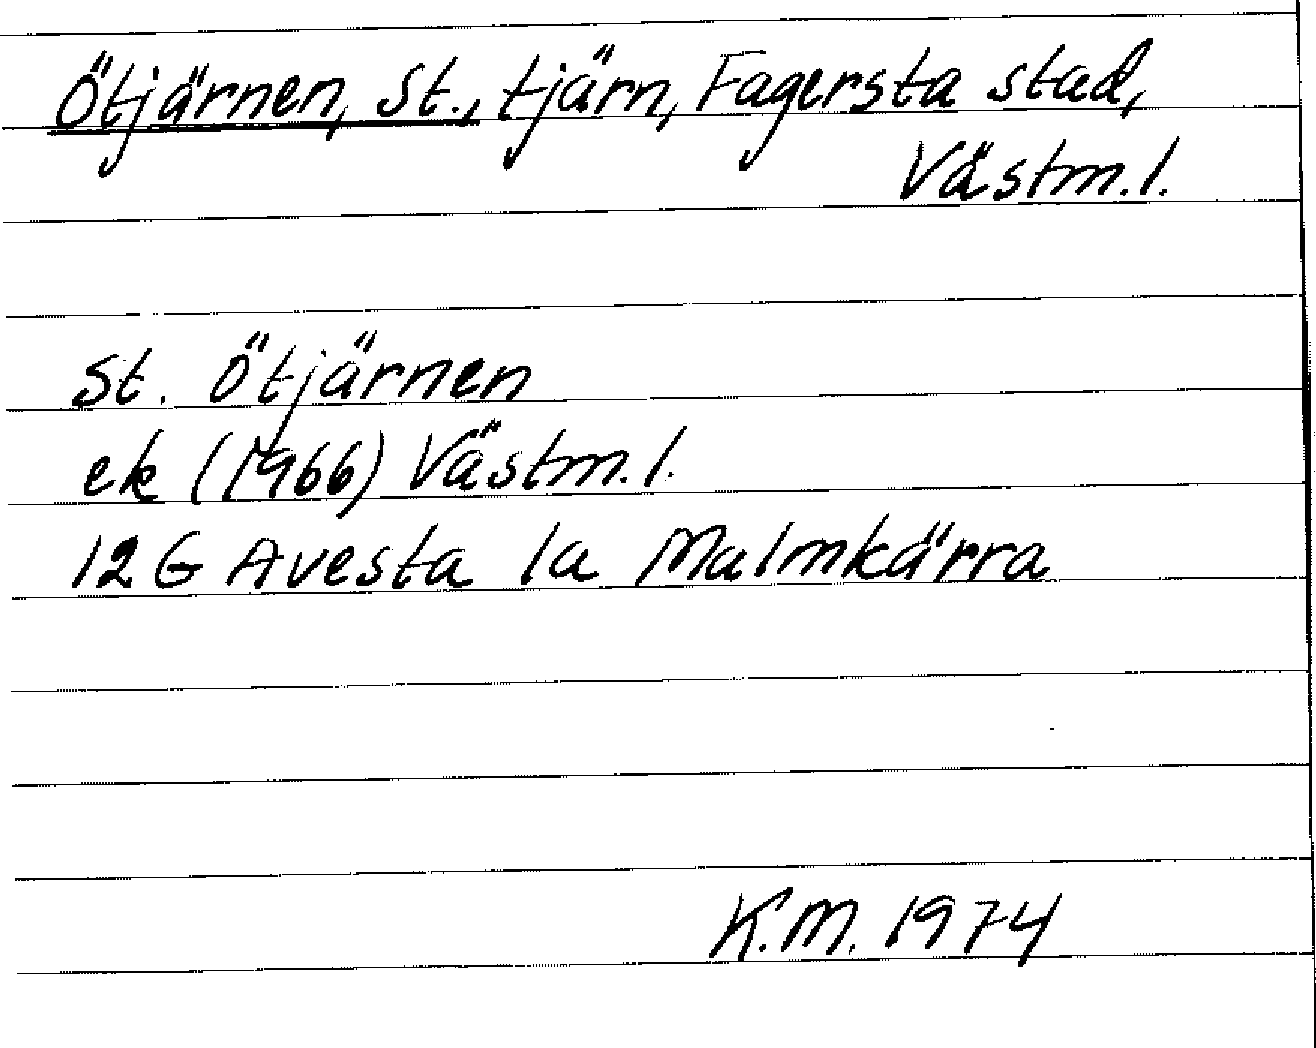 Ötjärnen, St., tjärn, Fagersta stad,
Västm. l.
St. Ötjärnen
ek (1966) Västm. l.
12 G Avesta 1a Malmkärra
K.M. 1974